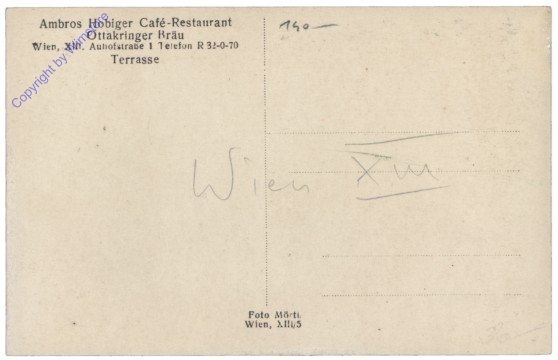 Ambros Hobiger Café-Restaurant
Ottakringer Bräu
Wien, XIII. Auhofstraße 1 Telefon R 32-0-70
Terrasse
Copyright by
140—
Wien XIII
Foto Mörtl
Wien, XIII/5
30—